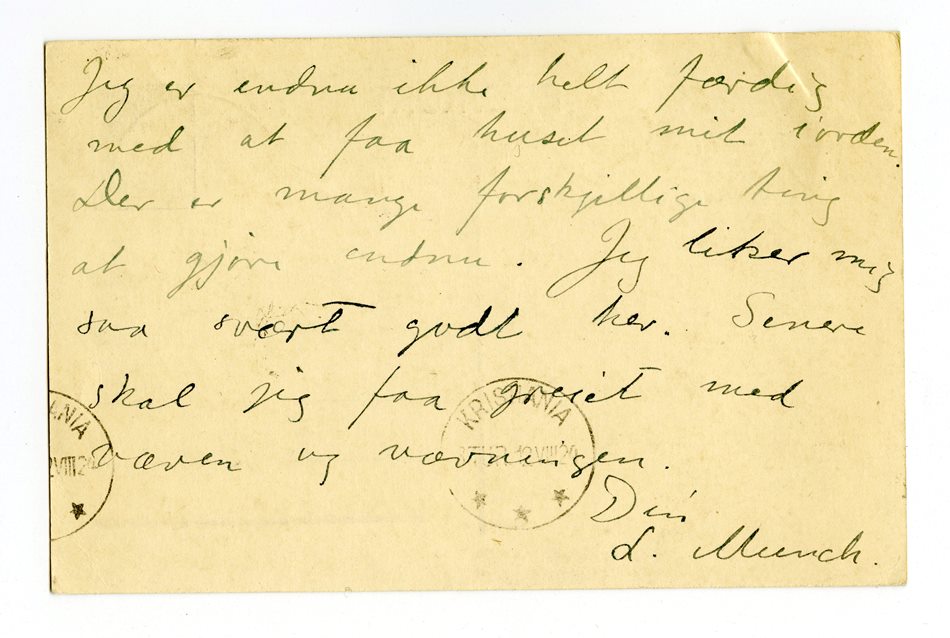 Jeg er endnu ikke helt færdig
med at faa huset mit iorden.
Der er mange forskjellige ting
at gjøre endnu. Jeg liker mig
saa svært godt her. Senere
skal jeg faa greiet med
væven og vævningen.
Din
L. Munch.
KRISTIANIA
12 VIII 2
ANIA
2 VIII 2